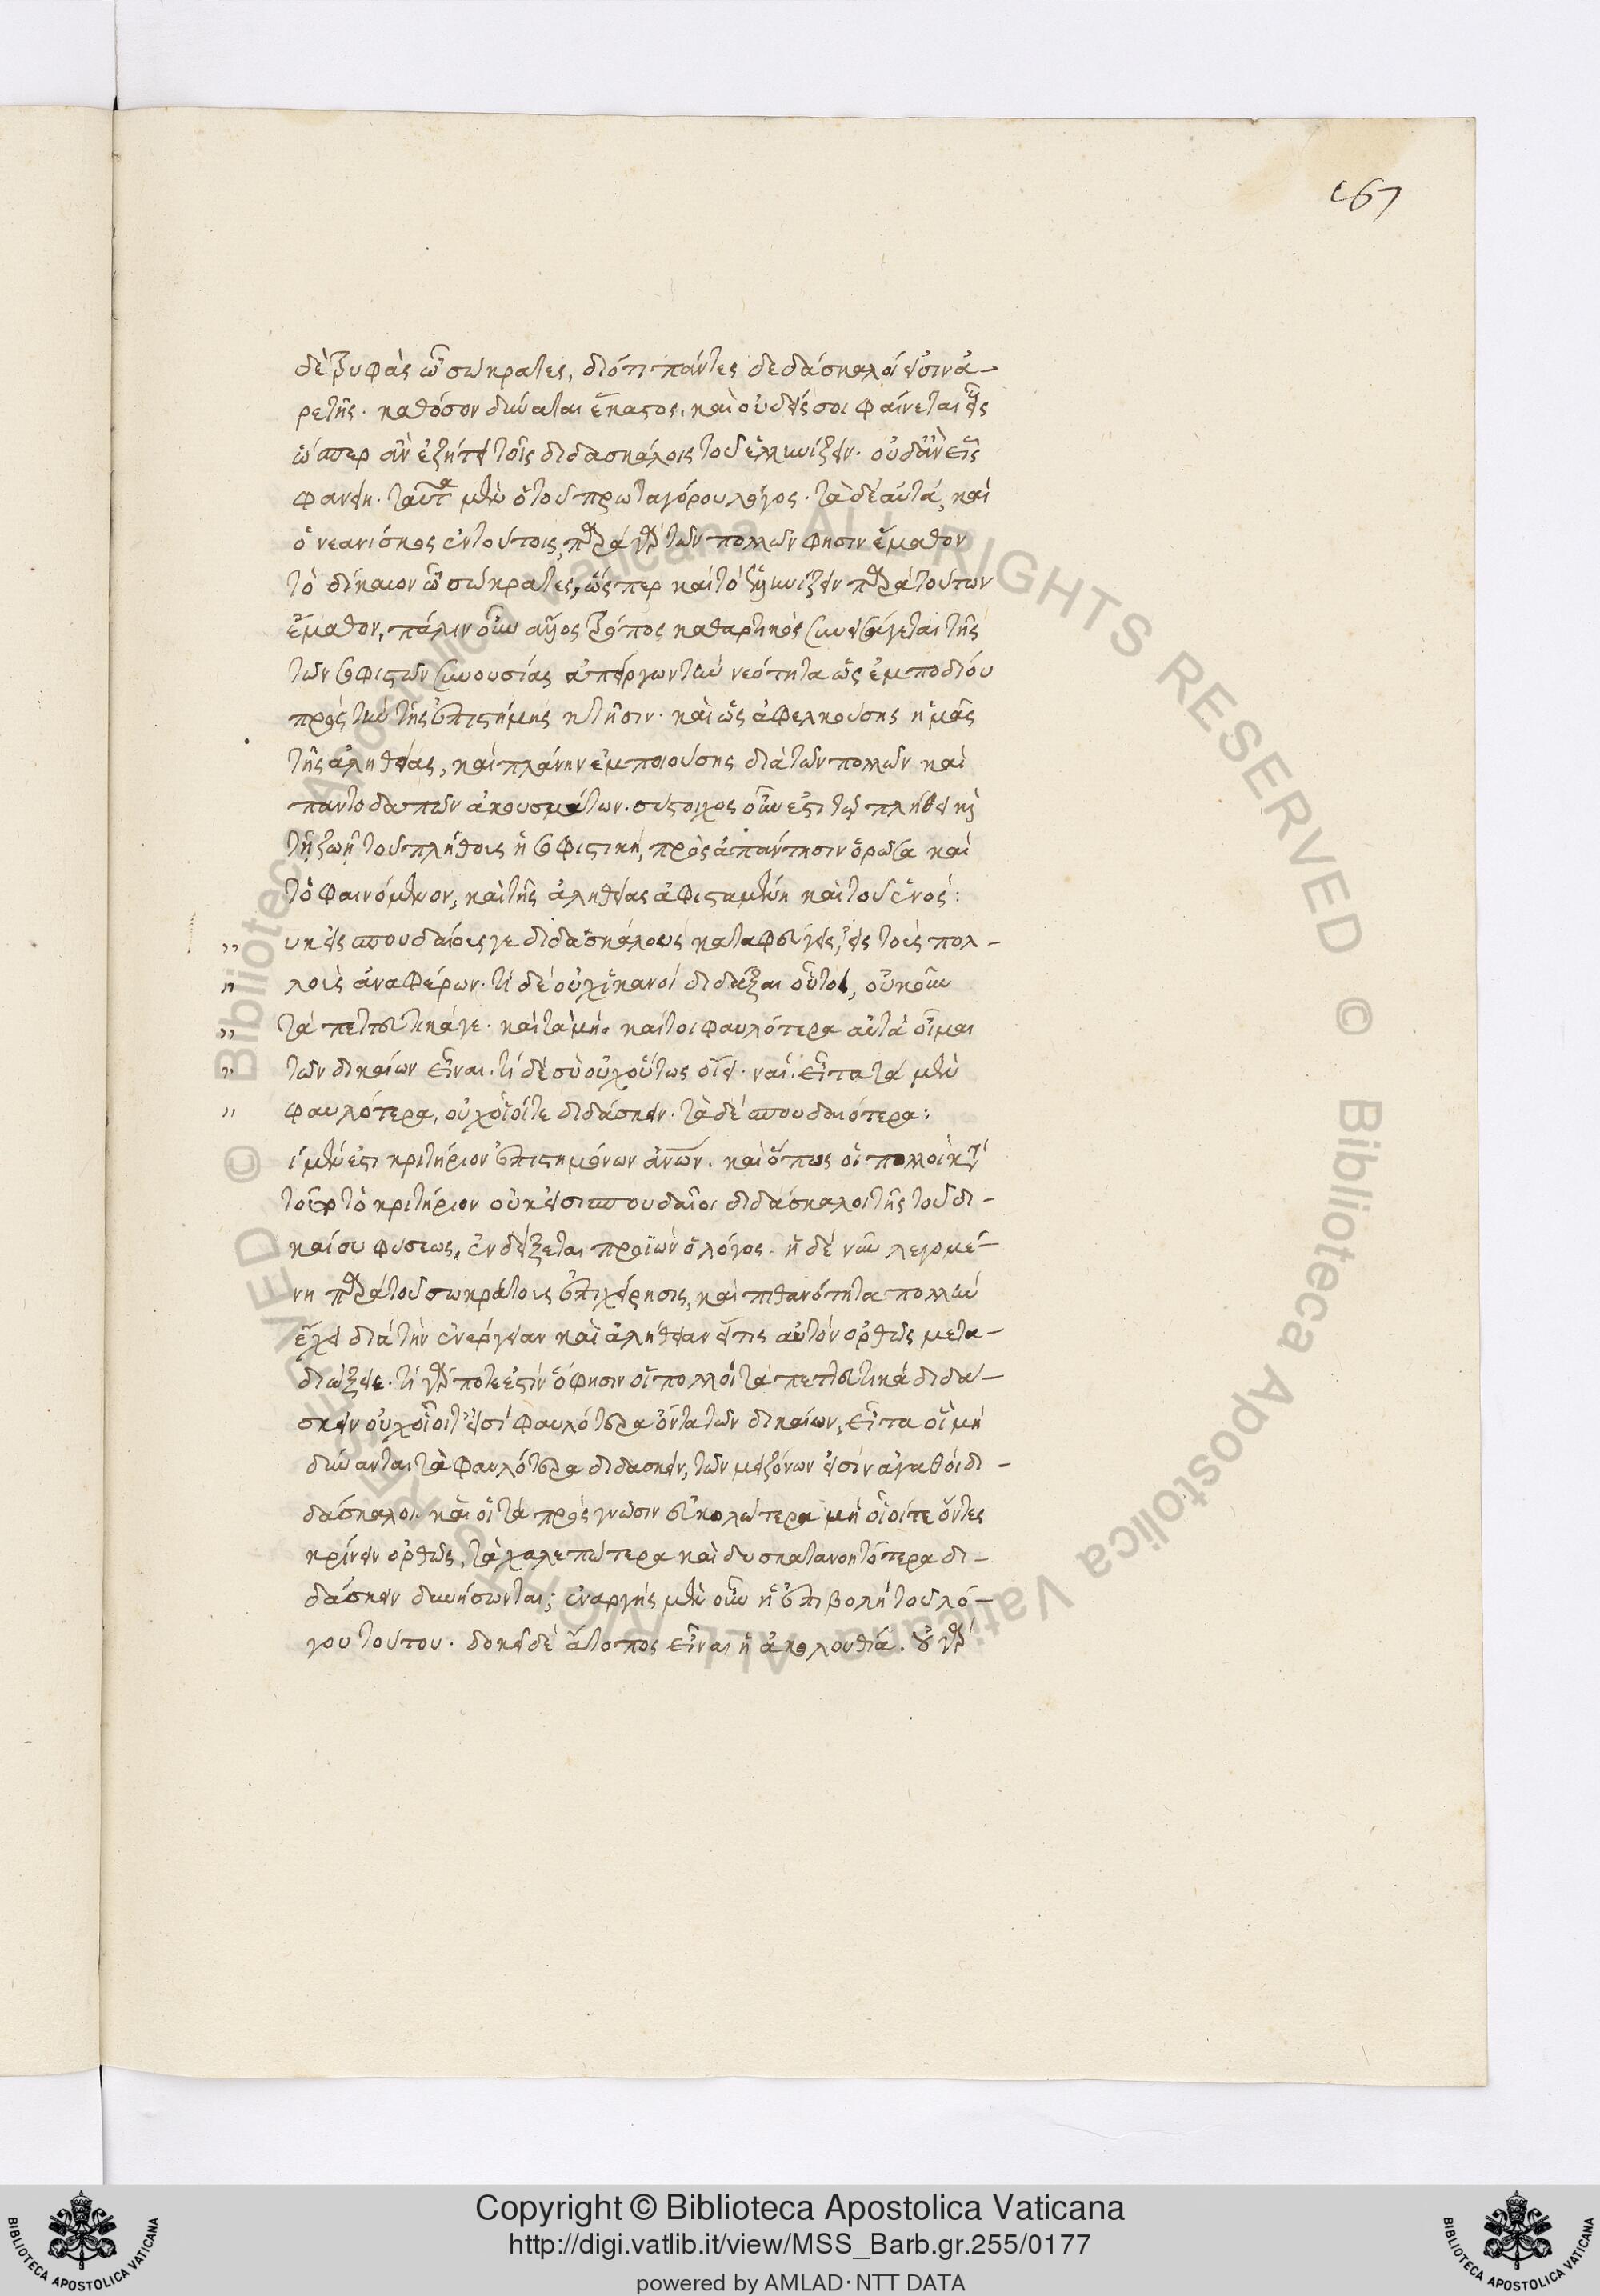 167
δὲ τρυφᾶς ὦ σώκρατες, διότι πάντες διδάσκαλοί εἰσιν ἀ-
ρετῆς. καθόσον δύναται ἕκαστος. καὶ οὐδείς σοι φαίνεται εἷς
ὥσπερ ἂν εἰ ζητεῖ τοῖς διδασκάλοις τοῦ ἑλληνίζειν. οὐδ' ἂν εἷς
φανείη. ταῦτα μὲν ὁ τοῦ πρωταγόρου λόγος. τὰ δὲ αὐτὰ, καὶ
ὁ νεανίσκος ἐν τούτοις, παρὰ γὰρ τῶν πολλῶν φησιν ἔμαθον
τὸ δίκαιον ὦ σώκρατες, ὥσπερ καὶ τὸ ἑλληνίζειν παρὰ τούτων
ἔμαθον, πάλιν οὖν ἄλλος τρόπος καθαρτικὸς συνεισάγεται τῆς
τῶν σοφιστῶν συνουσίας ἀπείργων τὴν νεότητα ὡς ἐμποδίου
πρὸς τὴν τῆς ἐπιστήμης κτῆσιν. καὶ ὡς ἀφελκούσης ἡμᾶς
τῆς ἀληθείας, καὶ πλάνην ἐμποιούσης διὰ τῶν πολλῶν καὶ
παντοδαπῶν ἀκουσμάτων. σύστοιχος οὖν ἐστι τῷ πλήθει καὶ
τῇ ζωῇ τοῦ πλήθους ἡ σοφιστικὴ, πρὸς ἀπάντησιν ὁρῶσα καὶ
τὸ φαινόμενον, καὶ τῆς ἀληθείας ἀφισταμένη καὶ τοῦ ἑνός:
υκ εἰς σπουδαίους γε διδασκάλους καταφεύγεις, εἰς τοὺς πολ-
λοὺς ἀναφέρων. τί δὲ οὐχ ἱκανοὶ διδάξαι οὗτοι, οὔκουν
τὰ πεττευτικά γε. καὶ τὰ μή. καίτοι φαυλότερα αὐτὰ οἶμαι
τῶν δικαίων εἶναι. τί δὲ σὺ οὐχ οὕτως οἴει. ναί. εἶτα τὰ μὲν
φαυλότερα, οὐχ οἷοί τε διδάσκειν. τὰ δὲ σπουδαιότερα:
ί μέν ἐστι κριτήριον ἐπιστημόνων ἀνων. καὶ ὅπως οἱ πολλοὶ κατὰ
τοῦτο τὸ κριτήριον οὐκ εἰσὶ σπουδαῖοι διδάσκαλοι τῆς τοῦ δι-
καίου φύσεως, ἐνδείξεται προϊὼν ὁ λόγος. ἡ δὲ νῦν λεγομέ-
νη παρὰ τοῦ σωκράτους ἐπιχείρησις, καὶ πιθανότητα πολλὴν
ἔχει διὰ τὴν ἐνέργειαν καὶ ἀλήθειαν εἴ τις αὐτὸν ὀρθῶς μετα-
διώξειε. τί γάρ ποτε ἐστὶν ὅ φησιν οἱ πολλοὶ τὰ πεττευτικὰ διδά-
σκειν οὐχ οἷοί τ' εἰσὶ φαυλότερα ὄντα τῶν δικαίων, εἶτα οἱ μὴ
δύνανται τὰ φαυλότερα διδάσκειν, τῶν μειζόνων εἰσὶν ἀγαθοὶ δι-
δάσκαλοι. καὶ οἱ τὰ πρὸς γνῶσιν εὐκολώτερα μὴ οἷοί τε ὄντες
κρίνειν ὀρθῶς, τὰ χαλεπώτερα καὶ δυσκατανοητότερα δι-
δάσκειν δυνήσωνται; ἐναργὴς μὲν οὖν ἡ ἐπιβολὴ τοῦ λό-
γου τούτου. δοκεῖ δὲ ἄτοπος εἶναι ἡ ἀκολουθία. οὐ γὰρ
Copyright © Biblioteca Apostolica Vaticana
http://digi.vatlib.it/view/MSS_Barb.gr.255/0177
powered by AMLAD·NTT DATA
BIBLIOTECA APOSTOLICA VATICANA
BIBLIOTECA APOSTOLICA VATICANA
© Biblioteca Apostolica Vaticana ALL RIGHTS RESERVED © Biblioteca Apostolica Vaticana ALL RIGHTS RESERVED